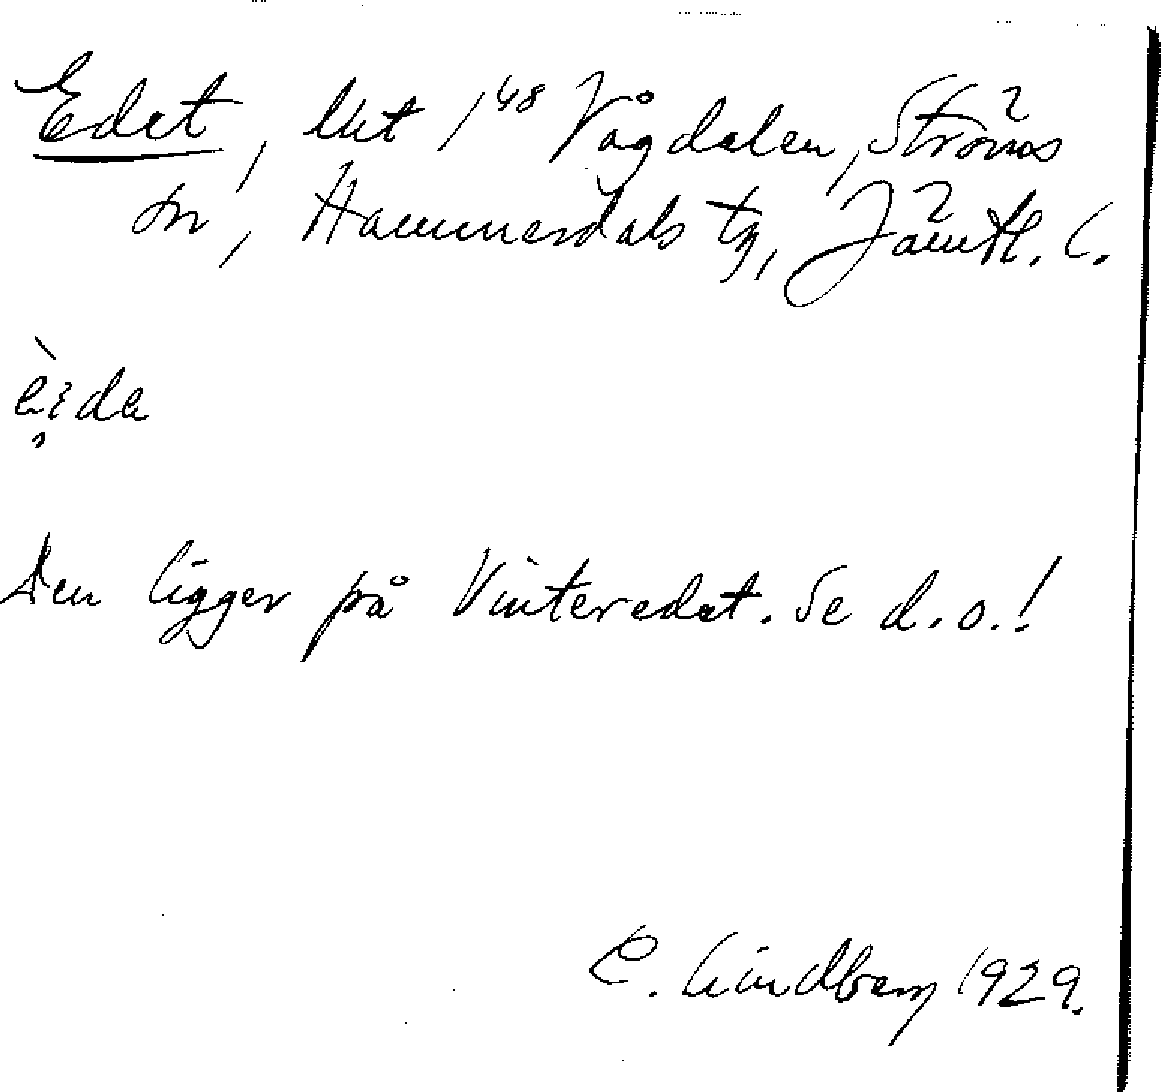 Edet, lht 1⁴⁸ Vågdalen, Ströms
sn, Hammerdals tg, Jämtl. l.
èi̯da
Den ligger på Vinteredet. Se d. o.!
C. Lindberg 1929.